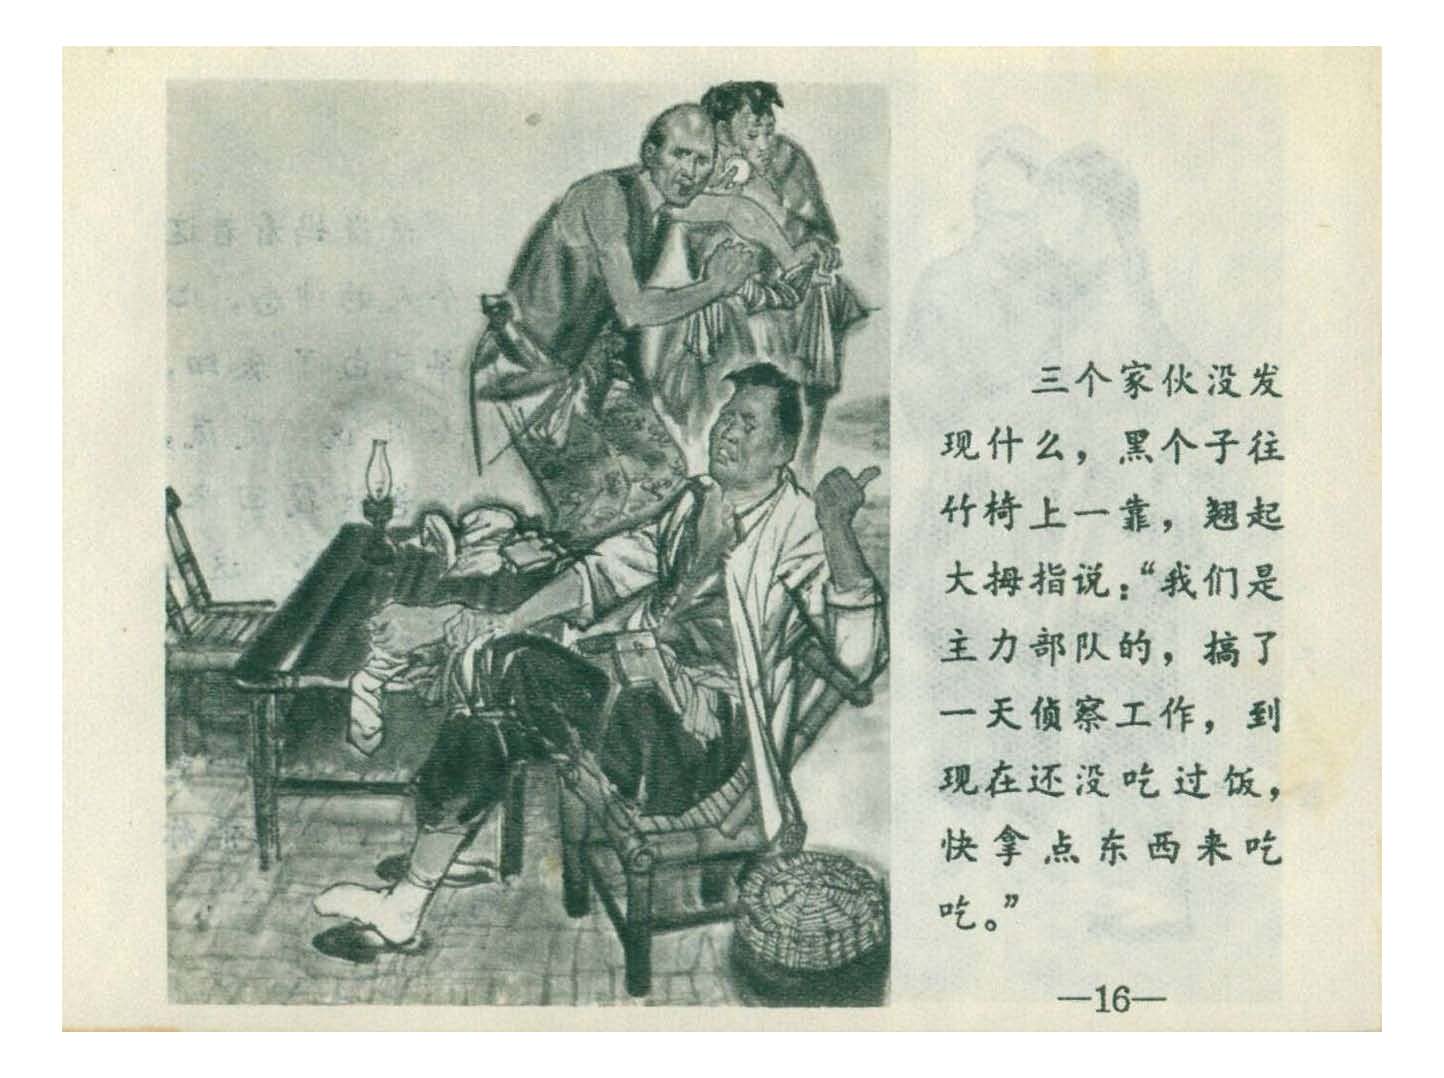 三个家伙没发
现什么，黑个子往
竹椅上一靠，翘起
大拇指说：“我们是
主力部队的，搞了
一天侦察工作，到
现在还没吃过饭，
快拿点东西来吃
吃。”
—16—